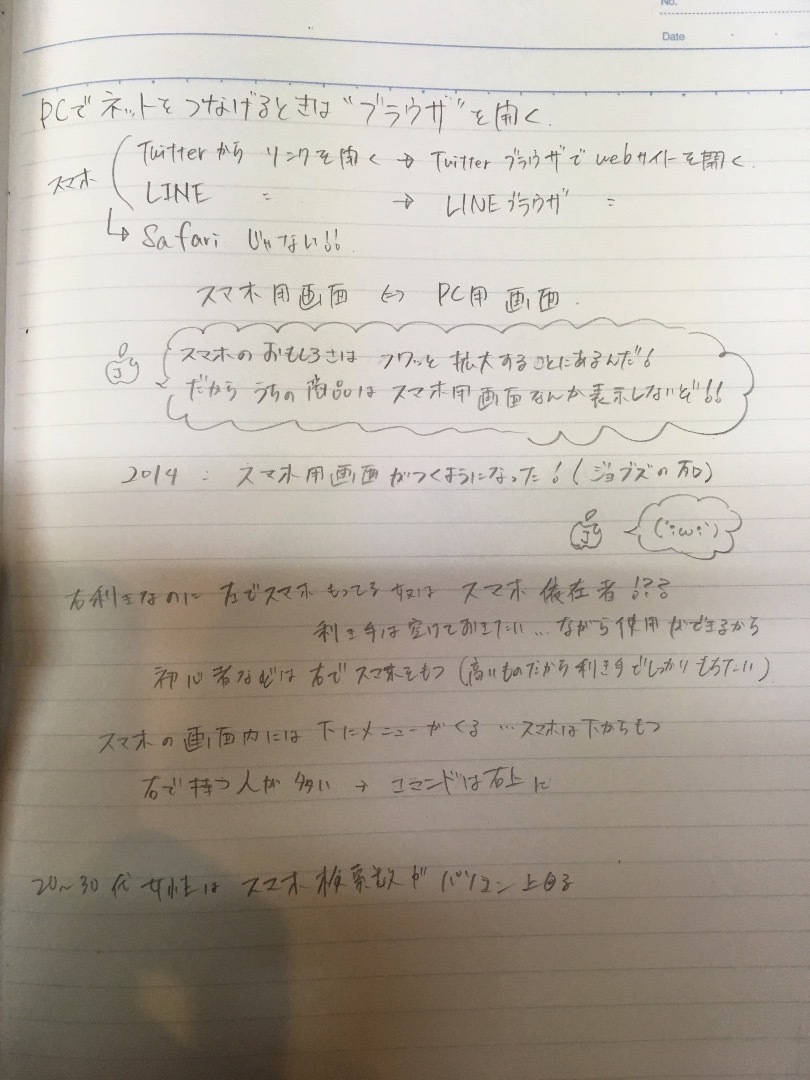 No.
Date
PCでネットをつなげるときは“ブラウザ”を開く.
スマホ
Twitterから リンクを開く → Twitter ブラウザで webサイトを開く.
LINE 〃 → LINEブラウザ 〃
↳ Safari じゃない!!
スマホ用画面 ⇔ PC用画面.
スマホのおもしろさは フワッと 拡大することにあるんだ!
だから うちの商品は スマホ用画面なんか表示しないぞ!!
2014 : スマホ用画面がつくようになった! (ジョブズの死)
(´;ω;`)
右利きなのに 左でスマホ もってる 奴は スマホ 依在者!??
利き手は空けておきたい…ながら使用ができるから
初心者などは 右でスマホをもつ (高いものだから利き手でしっかりもちたい)
スマホの画面内には 下にメニューがくる …スマホは下からもつ
右で持つ人が多い → コマンドは右上に
20~30代 女性は スマホ検索数が パソコン上回る